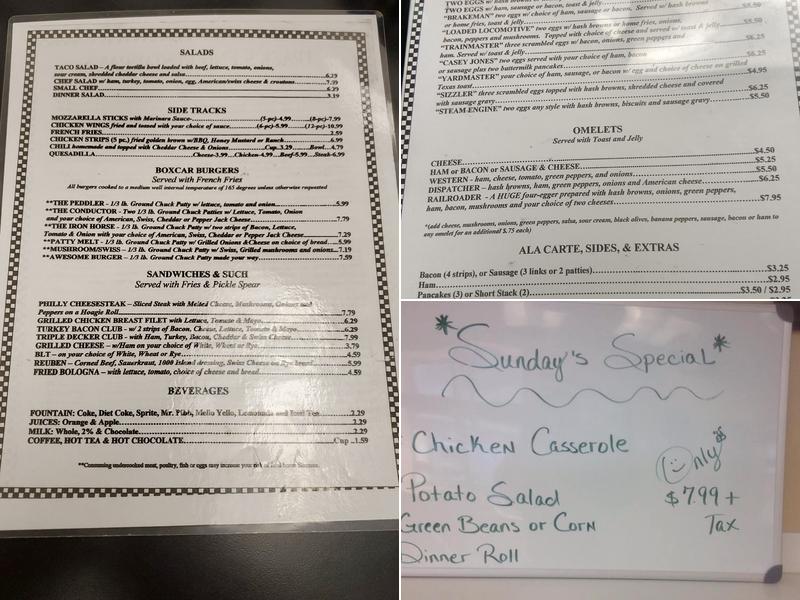 SALADS
TACO SALAD – A flour tortilla bowl loaded with beef, lettuce, tomato, onions,
sour cream, shredded cheddar cheese and salsa. 6.29
CHEF SALAD w/ ham, turkey, tomato, onion, egg, American/swiss cheese & croutons 7.29
SMALL CHEF 6.29
DINNER SALAD 3.19
SIDE TRACKS
MOZZARELLA STICKS with Marinara Sauce (5-pc)-4.99 (8-pc)-7.99
CHICKEN WINGS fried and tossed with your choice of sauce (6-pc)-5.99 (12-pc)-10.99
FRENCH FRIES 2.59
CHICKEN STRIPS (5 pc.) fried golden brown w/BBQ, Honey Mustard or Ranch 6.99
CHILI homemade and topped with Cheddar Cheese & Onions Cup..3.29 Bowl..4.79
QUESADILLA Cheese-3.99 Chicken-4.99 Beef-5.99 Steak-6.99
BOXCAR BURGERS
Served with French Fries
All burgers cooked to a medium well internal temperature of 165 degrees unless otherwise requested
**THE PEDDLER - 1/3 lb. Ground Chuck Patty w/ lettuce, tomato and onion 5.99
**THE CONDUCTOR - Two 1/3 lb. Ground Chuck Patties w/ Lettuce, Tomato, Onion
and your choice of American, Swiss, Cheddar or Pepper Jack Cheese 7.79
**THE IRON HORSE - 1/3 lb. Ground Chuck Patty w/ two strips of Bacon, Lettuce,
Tomato & Onion with your choice of American, Swiss, Cheddar or Pepper Jack Cheese 7.29
**PATTY MELT - 1/3 lb. Ground Chuck Patty w/ Grilled Onions & Cheese on choice of bread 5.99
**MUSHROOM/SWISS – 1/3 lb. Ground Chuck Patty w/ Swiss, Grilled mushrooms and onions 7.19
**AWESOME BURGER – 1/3 lb. Ground Chuck Patty made your way 7.59
SANDWICHES & SUCH
Served with Fries & Pickle Spear
PHILLY CHEESESTEAK – Sliced Steak with Melted Cheese, Mushrooms, Onions and
Peppers on a Hoagie Roll 7.79
GRILLED CHICKEN BREAST FILET with Lettuce, Tomato & Mayo 6.29
TURKEY BACON CLUB - w/ 2 strips of Bacon, Cheese, Lettuce, Tomato & Mayo 6.29
TRIPLE DECKER CLUB – with Ham, Turkey, Bacon, Cheddar & Swiss Cheese 7.99
GRILLED CHEESE – w/Ham on your choice of White, Wheat or Rye 3.79
BLT – on your choice of White, Wheat or Rye 4.59
REUBEN – Corned Beef, Sauerkraut, 1000 island dressing, Swiss Cheese on Rye bread 5.99
FRIED BOLOGNA – with lettuce, tomato, choice of cheese and bread 4.59
BEVERAGES
FOUNTAIN: Coke, Diet Coke, Sprite, Mr. Pibb, Mello Yello, Lemonade and Iced Tea 2.29
JUICES: Orange & Apple 2.29
MILK: Whole, 2% & Chocolate 2.29
COFFEE, HOT TEA & HOT CHOCOLATE Cup ..1.59
**Consuming undercooked meat, poultry, fish or eggs may increase your risk of food borne illnesses.
TWO EGGS w/ hash browns, toast & jelly
TWO EGGS w/ ham, sausage or bacon, toast & jelly $5.50
"BRAKEMAN" two eggs w/ choice of ham, sausage or bacon. Served w/ hash browns
or home fries, toast & jelly
"LOADED LOCOMOTIVE" two eggs w/ hash browns or home fries, onions, $5.50
bacon, peppers and mushrooms. Topped with choice of cheese and served w/ toast & jelly
"TRAINMASTER" three scrambled eggs w/ bacon, onions, green peppers and
ham. Served w/ toast & jelly $6.25
"CASEY JONES" two eggs served with your choice of ham, bacon
or sausage plus two buttermilk pancakes $6.25
"YARDMASTER" your choice of ham, sausage, or bacon w/ egg and choice of cheese on grilled
Texas toast $4.95
"SIZZLER" three scrambled eggs topped with hash browns, shredded cheese and covered
with sausage gravy $6.25
"STEAM-ENGINE" two eggs any style with hash browns, biscuits and sausage gravy $5.50
OMELETS
Served with Toast and Jelly
CHEESE $4.50
HAM or BACON or SAUSAGE & CHEESE $5.25
WESTERN - ham, cheese, tomato, green peppers, and onions $5.50
DISPATCHER – hash browns, ham, green peppers, onions and American cheese $6.25
RAILROADER – A HUGE four-egger prepared with hash browns, onions, green peppers,
ham, bacon, mushrooms and your choice of two cheeses $7.95
*(add cheese, mushrooms, onions, green peppers, salsa, sour cream, black olives, banana peppers, sausage, bacon or ham to
any omelet for an additional $.75 each)
ALA CARTE, SIDES, & EXTRAS
Bacon (4 strips), or Sausage (3 links or 2 patties) $3.25
Ham $2.95
Pancakes (3) or Short Stack (2) $3.50 / $2.95
*Sunday's Special*
Chicken Casserole
Only
Potato Salad $7.99 +
Green Beans or Corn Tax
Dinner Roll